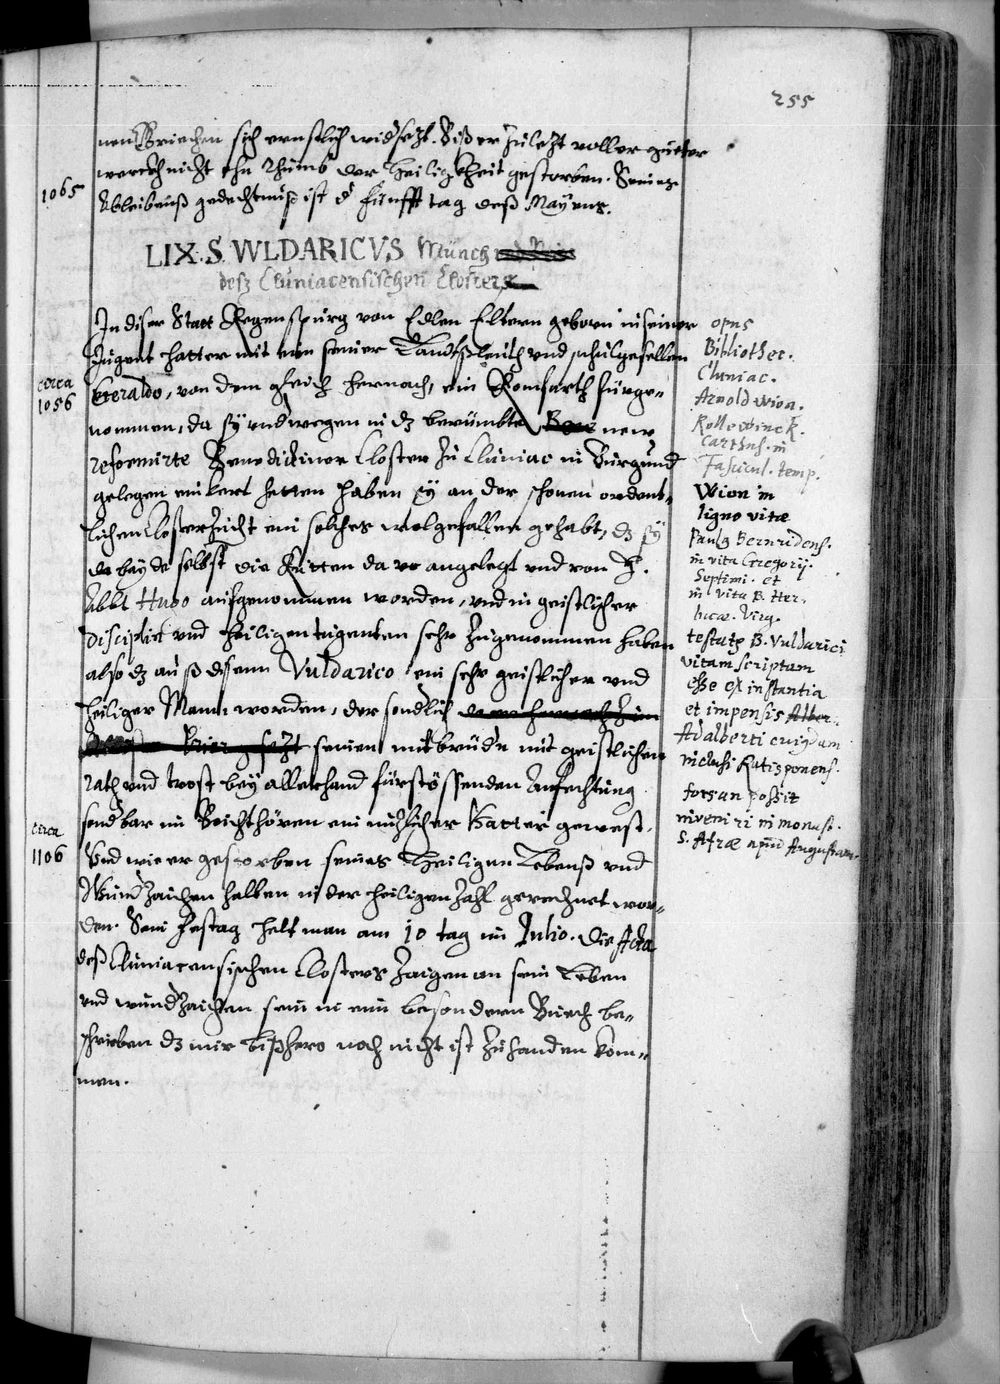 255
nen Griechen sich ernstlich widersezt. Biß er zulezt voller gutter
werckh nicht ohn Rhumb der Heiligkheit gestorben. Seines
1065
Ableibenß gedechtnuß ist d fünfft tag deß Mayens.
LIX. S. WLDARICVS Münch
deß Cluniacensischen Closters
In diser Statt Regenspurg von Edlen Eltern geborn in seiner
Jugent hatter mit eim seiner Landtßleuth und schulgesellen
circa
1056
Geraldo, von dem gleich hernach, ein Romfarth fürge-
nommen, da sy underwegen in dz berümbte new
reformirte Benedictiner Closter zu Cluniac in Burgund
gelegen einkert hetten haben sy an der schonen ordent-
lichen Closterzucht ein solches wolgefallen gehabt, dz sy
da bayde selbst die Kutten da angelegt und von H.
Abbt Hugo aufgenommen worden, und in geistlicher
Disciplin und heiligen tugenten sehr zugenommen haben
also dz auß disem Vuldarico ein sehr geistlicher und
heiliger Mann worden, der sonderlich
seinen mitbrüdern mit geistlichen
rath und trost bey allerhand fürstössenden Anfechtung
sonderbar im Beichthören ein nuzlicher Vatter gewest.
circa
1106
Und wie er gestorben seines Heiligen Lebenß und
Wunderzaichen halben in der heiligen Zahl gerechnet wor-
den. Sein Festag helt man am 10 tag im Julio. Die Acta
deß Cluniacensischen Closters zaigen an sein Leben
und wunderzaichen sein in eim besondern Buech be-
schrieben dz mir bißhero noch nicht ist zuhanden kom-
men.
opus
Bibliothec.
Cluniac.
Arnold Wion.
Rollewinck.
Carthus. in
Fascicul. temp.
Wion in
ligno vitæ
Paulus Bernridens.
in vita Gregorij.
Septimi. et
in vita B. Her-
lucæ. Virg.
testatur B. Vuldarici
vitam scriptam
esse ex instantia
et impensis Alber
Adalberti cuiusdam
inclusi Ratisponens.
forsan possit
inveniri in monast.
S. Afræ apud Augustam.